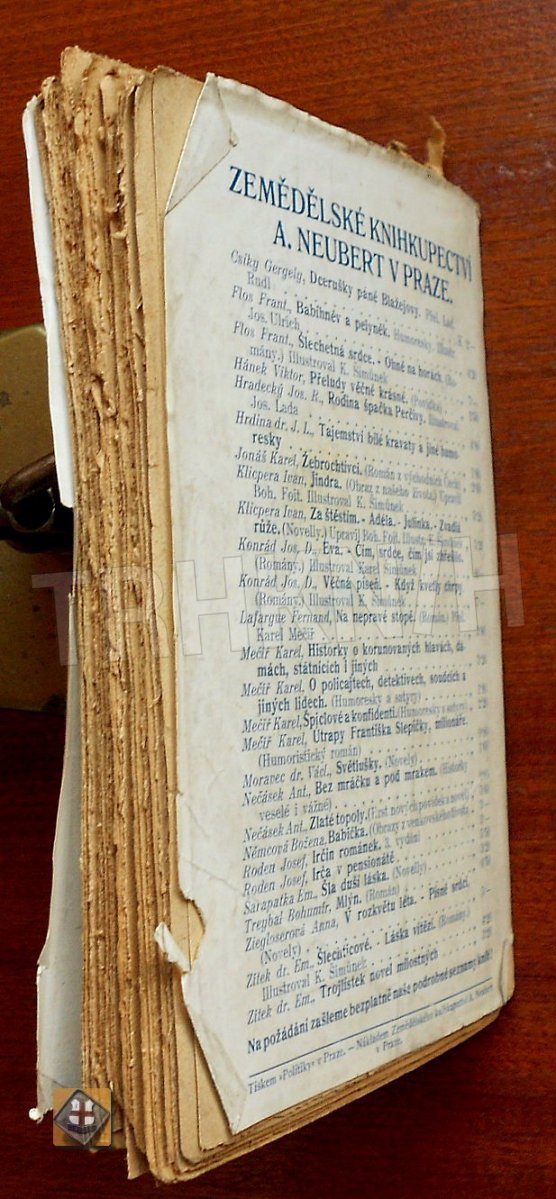 ZEMĚDĚLSKÉ KNIHKUPECTVÍ
A. NEUBERT V PRAZE.
Csiky Gergely, Dcerušky páně Blažejovy. Přel. Lad.
Rudl
Flos Frant., Babihněv a pelyněk. Humoresky. Illustr.
Jos. Ulrich
Flos Frant., Šlechetná srdce. - Ohně na horách. (Ro-
mány.) Illustroval K. Šimůnek
Hánek Viktor, Přeludy věčně krásné. (Povídky)
Hradecký Jos. R., Rodina špačka Perčivy. Illustroval
Jos. Lada
Hrdina dr. J. L., Tajemství bílé kravaty a jiné humo-
resky
Jonáš Karel, Žebrochtivci. (Román z východních Čech)
Klicpera Ivan, Jindra. (Obraz z našeho života.) Upravil
Boh. Fojt. Illustroval K. Šimůnek
Klicpera Ivan, Za štěstím. - Adéla. - Julinka. - Zvadlá
růže. (Novelly.) Upravil Boh. Fojt. Illustr. K. Šimůnek
Konrád Jos. D., Eva. - Čím, srdce, čím jsi zhřešilo.
(Romány.) Illustroval Karel Šimůnek
Konrád Jos. D., Věčná píseň. - Když kvetly chrpy.
(Romány.) Illustroval K. Šimůnek
Lafargue Fernand, Na nepravé stopě. (Román.) Přel.
Karel Mečíř
Mečíř Karel, Historky o korunovaných hlavách, dá-
mách, státnících i jiných
Mečíř Karel, O policajtech, detektivech, soudcích a
jiných lidech. (Humoresky a satyry)
Mečíř Karel, Špiclové a konfidenti. (Humoresky a satyry)
Mečíř Karel, Útrapy Františka Slepičky, milionáře.
(Humoristický román)
Moravec dr. Václ., Světlušky. (Novely)
Nečásek Ant., Bez mráčku a pod mrakem. (Historky
veselé i vážné)
Nečásek Ant., Zlaté topoly. (Erst nových povídek a novel)
Němcová Božena, Babička. (Obrazy z venkovského života)
Roden Josef, Irčin románek, 3. vydání
Roden Josef, Irča v pensionátě
Šarapatka Em., Šla duší láska. (Novelly)
Treybal Bohumír, Mlýn. (Román)
Zieglóserová Anna, V rozkvětu léta. - Písně srdcí.
(Novely)
Zítek dr. Em., Šlechticové. - Láska vítězí. (Romány.)
Illustroval K. Šimůnek
Zítek dr. Em., Trojlístek novel milostných
Na požádání zašleme bezplatně naše podrobné seznamy knih!
Tiskem »Politiky« v Praze. — Nákladem Zemědělského knihkupectví A. Neubert
v Praze.